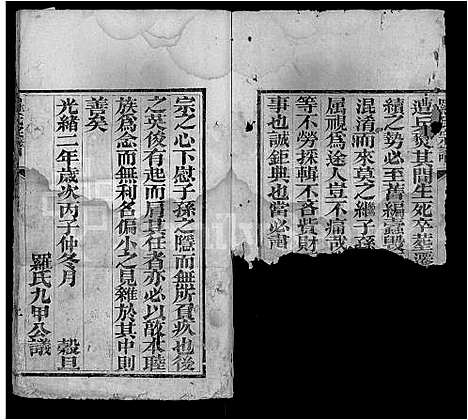 其間生死卒葬
續之勢必至舊編蠹毀
混淆而來莫之繼子孫
屈視為途人豈不痛哉
等不勞採輯不吝貲財
事也誠鉅典也當必肅
宗之心下慰子孫之隱而無所負疚也後
之英俊有起而肩其任者亦必以敦本睦
族為念而無利名偏小之見雜於其中則
善矣
光緒二年歲次丙子仲冬月 穀旦
羅氏九甲公議